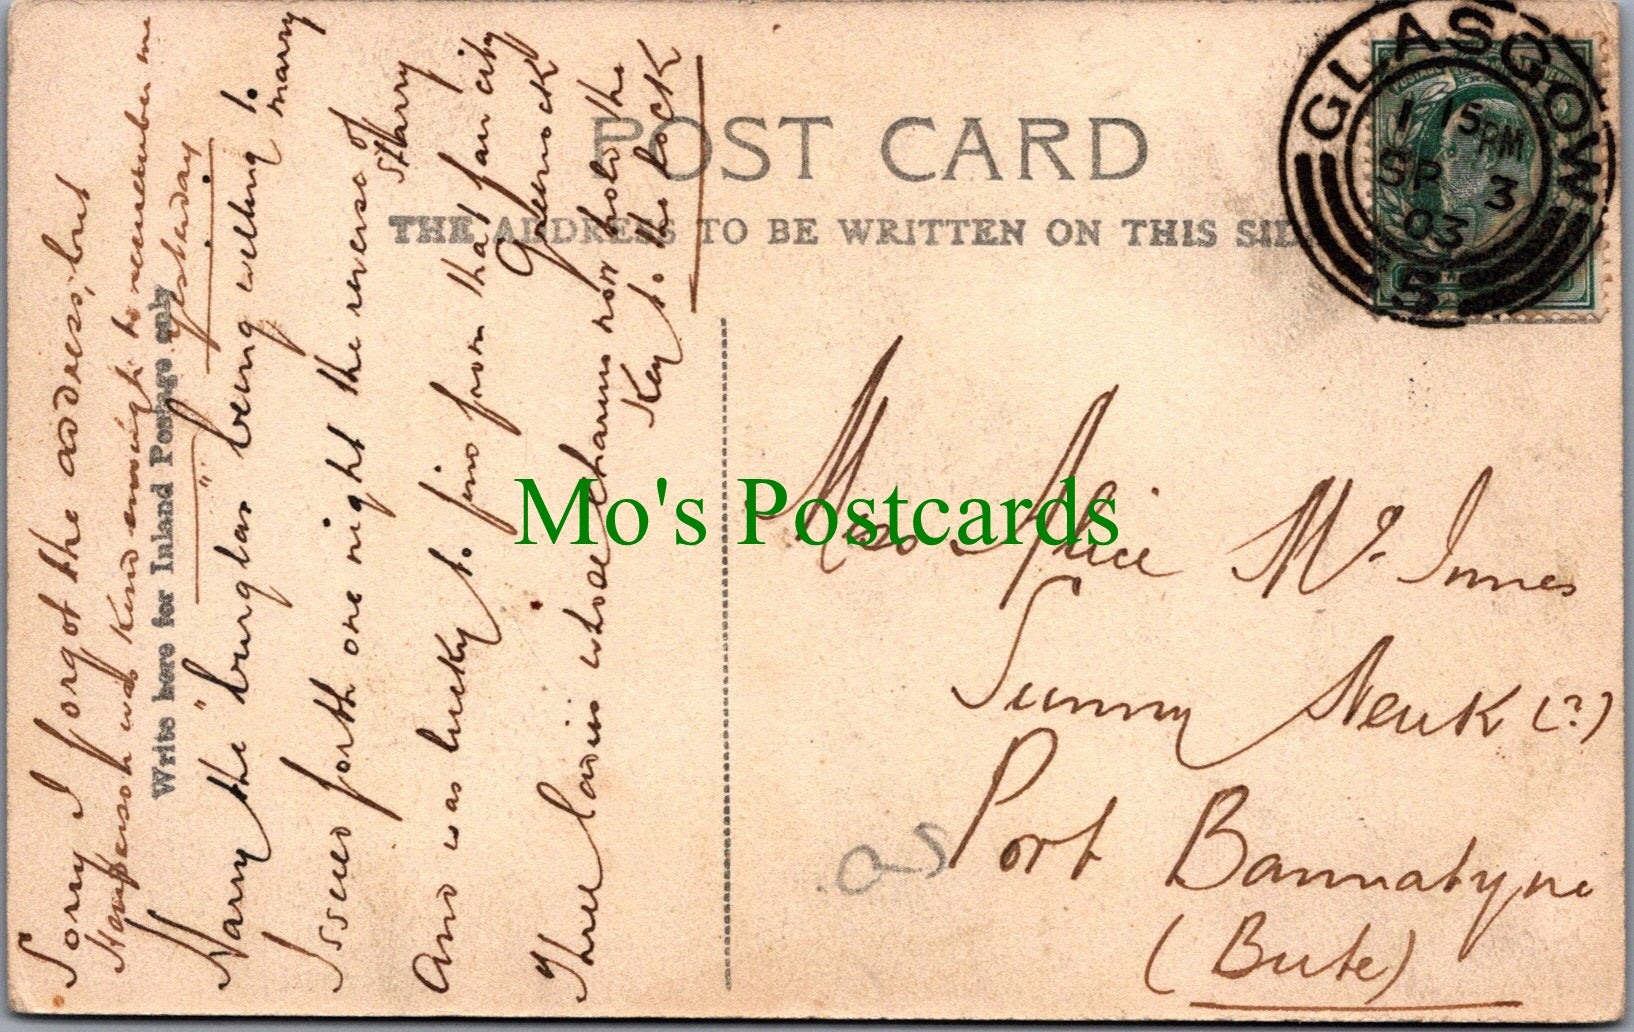 POST CARD
THE ADDRESS TO BE WRITTEN ON THIS SIDE
GLASGOW
1 15 PM
SP 3
03
5
Write here for Inland Postage only
Sorry I forgot the address, but
was kind enough to remember me
yesterday
Harry the "burglar" being willing to
marry
Issued forth one night the reverse of
starry
And was lucky to find from that fair city
Greenock
Three ladies whose charms now hold the
Key to the lock
Miss Alice McInnes
Sunny Neuk (?)
Port Bannatyne
(Bute)
Mo's Postcards